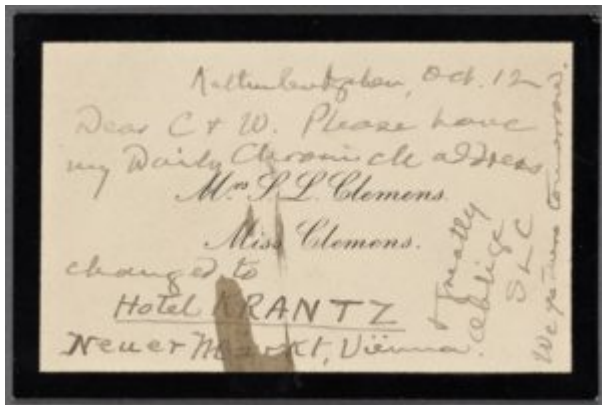 Kaltenleutgeben, Oct. 12
Dear C & W. Please have
my Daily Chronicle address
Mrs S. L. Clemens.
Miss Clemens.
changed to
Hotel KRANTZ
Neuer Markt, Vienna.
& greatly
oblige
SLC
We go there tomorrow.